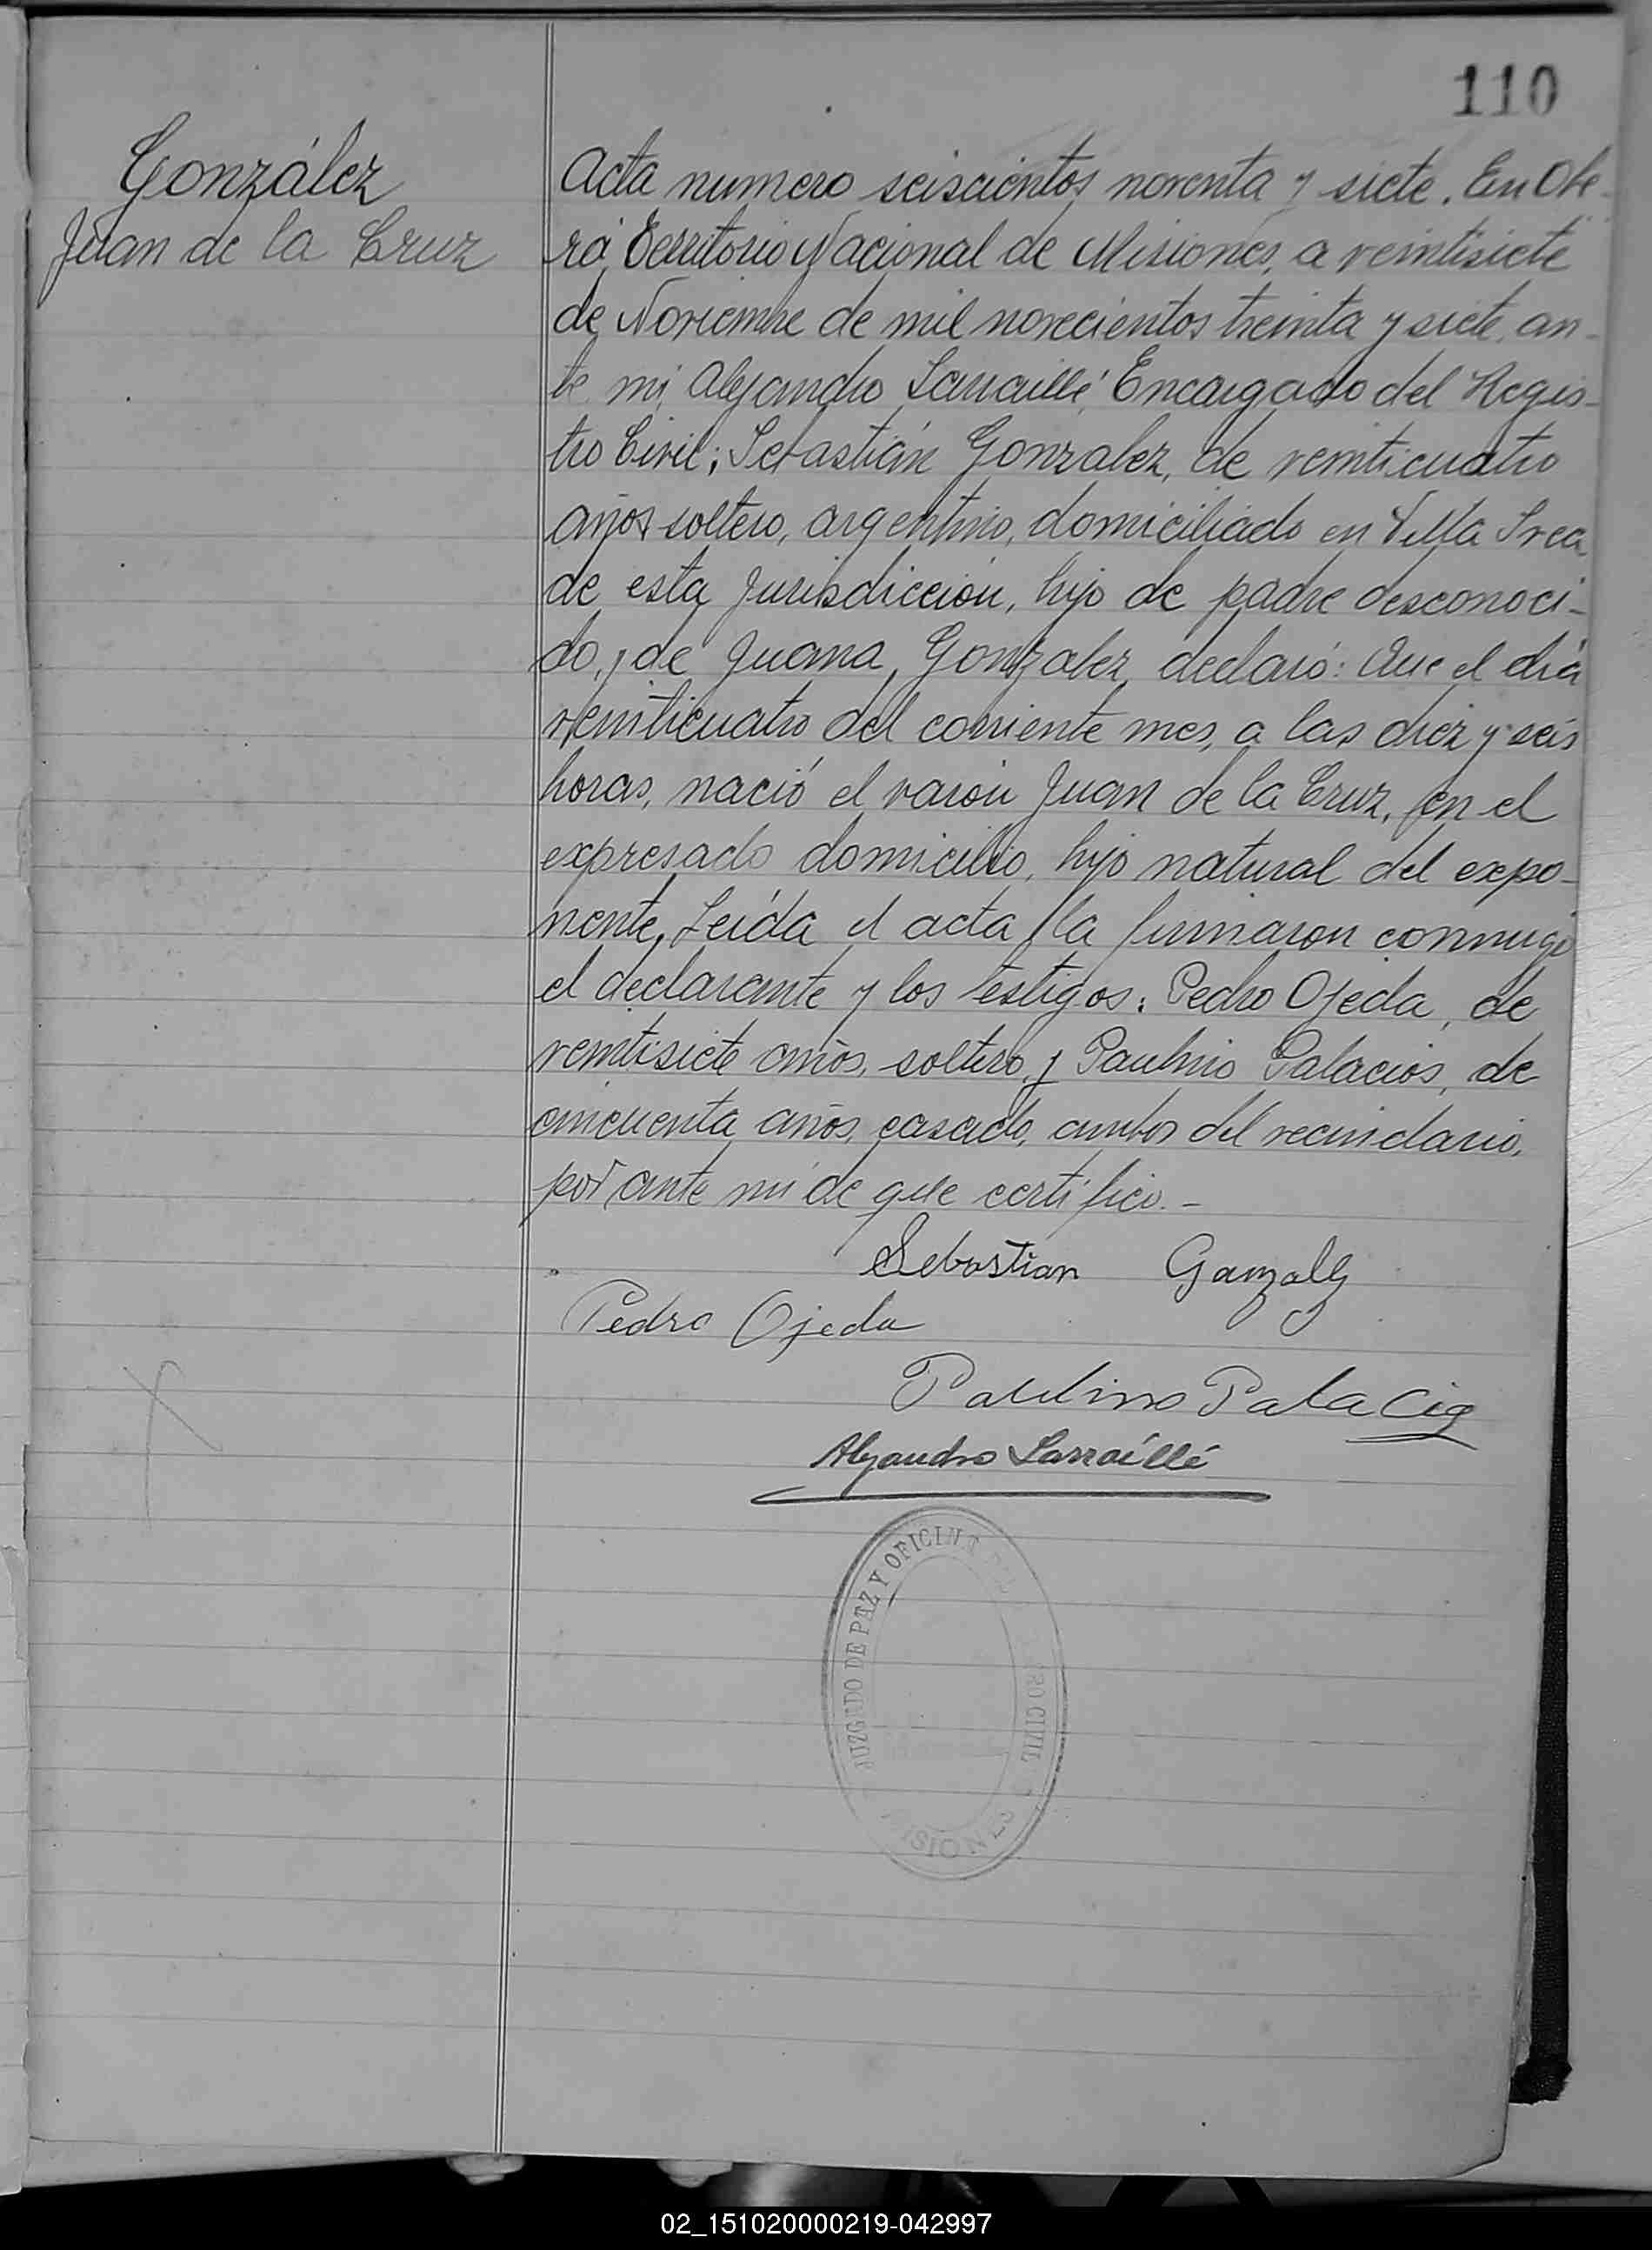 110
González
Juan de la Cruz
Acta numero seiscientos noventa y siete. En Obe-
rá, Territorio Nacional de Misiones, a veintisiete
de Noviembre de mil novecientos treinta y siete, an-
te mi, Alejandro Larraillé, Encargado del Regis-
tro Civil; Sebastián Gonzalez, de veinticuatro
años, soltero, argentino, domiciliado en Villa Svea
de esta jurisdicción, hijo de padre desconoci-
do, y de Juana Gonzalez, declaró: Que el día
veinticuatro del corriente mes, a las diez y seis
horas, nació el varón Juan de la Cruz, en el
expresado domicilio, hijo natural del expo-
nente. Leída el acta la firmaron conmigo
el declarante y los testigos: Pedro Ojeda, de
veintisiete años, soltero y Paulino Palacios, de
cincuenta años, casado, ambos del vecindario,
por ante mí de que certifico.-
Sebastian Gonzalez
Pedro Ojeda
Paulino Palacio
Alejandro Larraillé
JUZGADO DE PAZ Y OFICINA
CIVIL
MISIONES
02_151020000219-042997